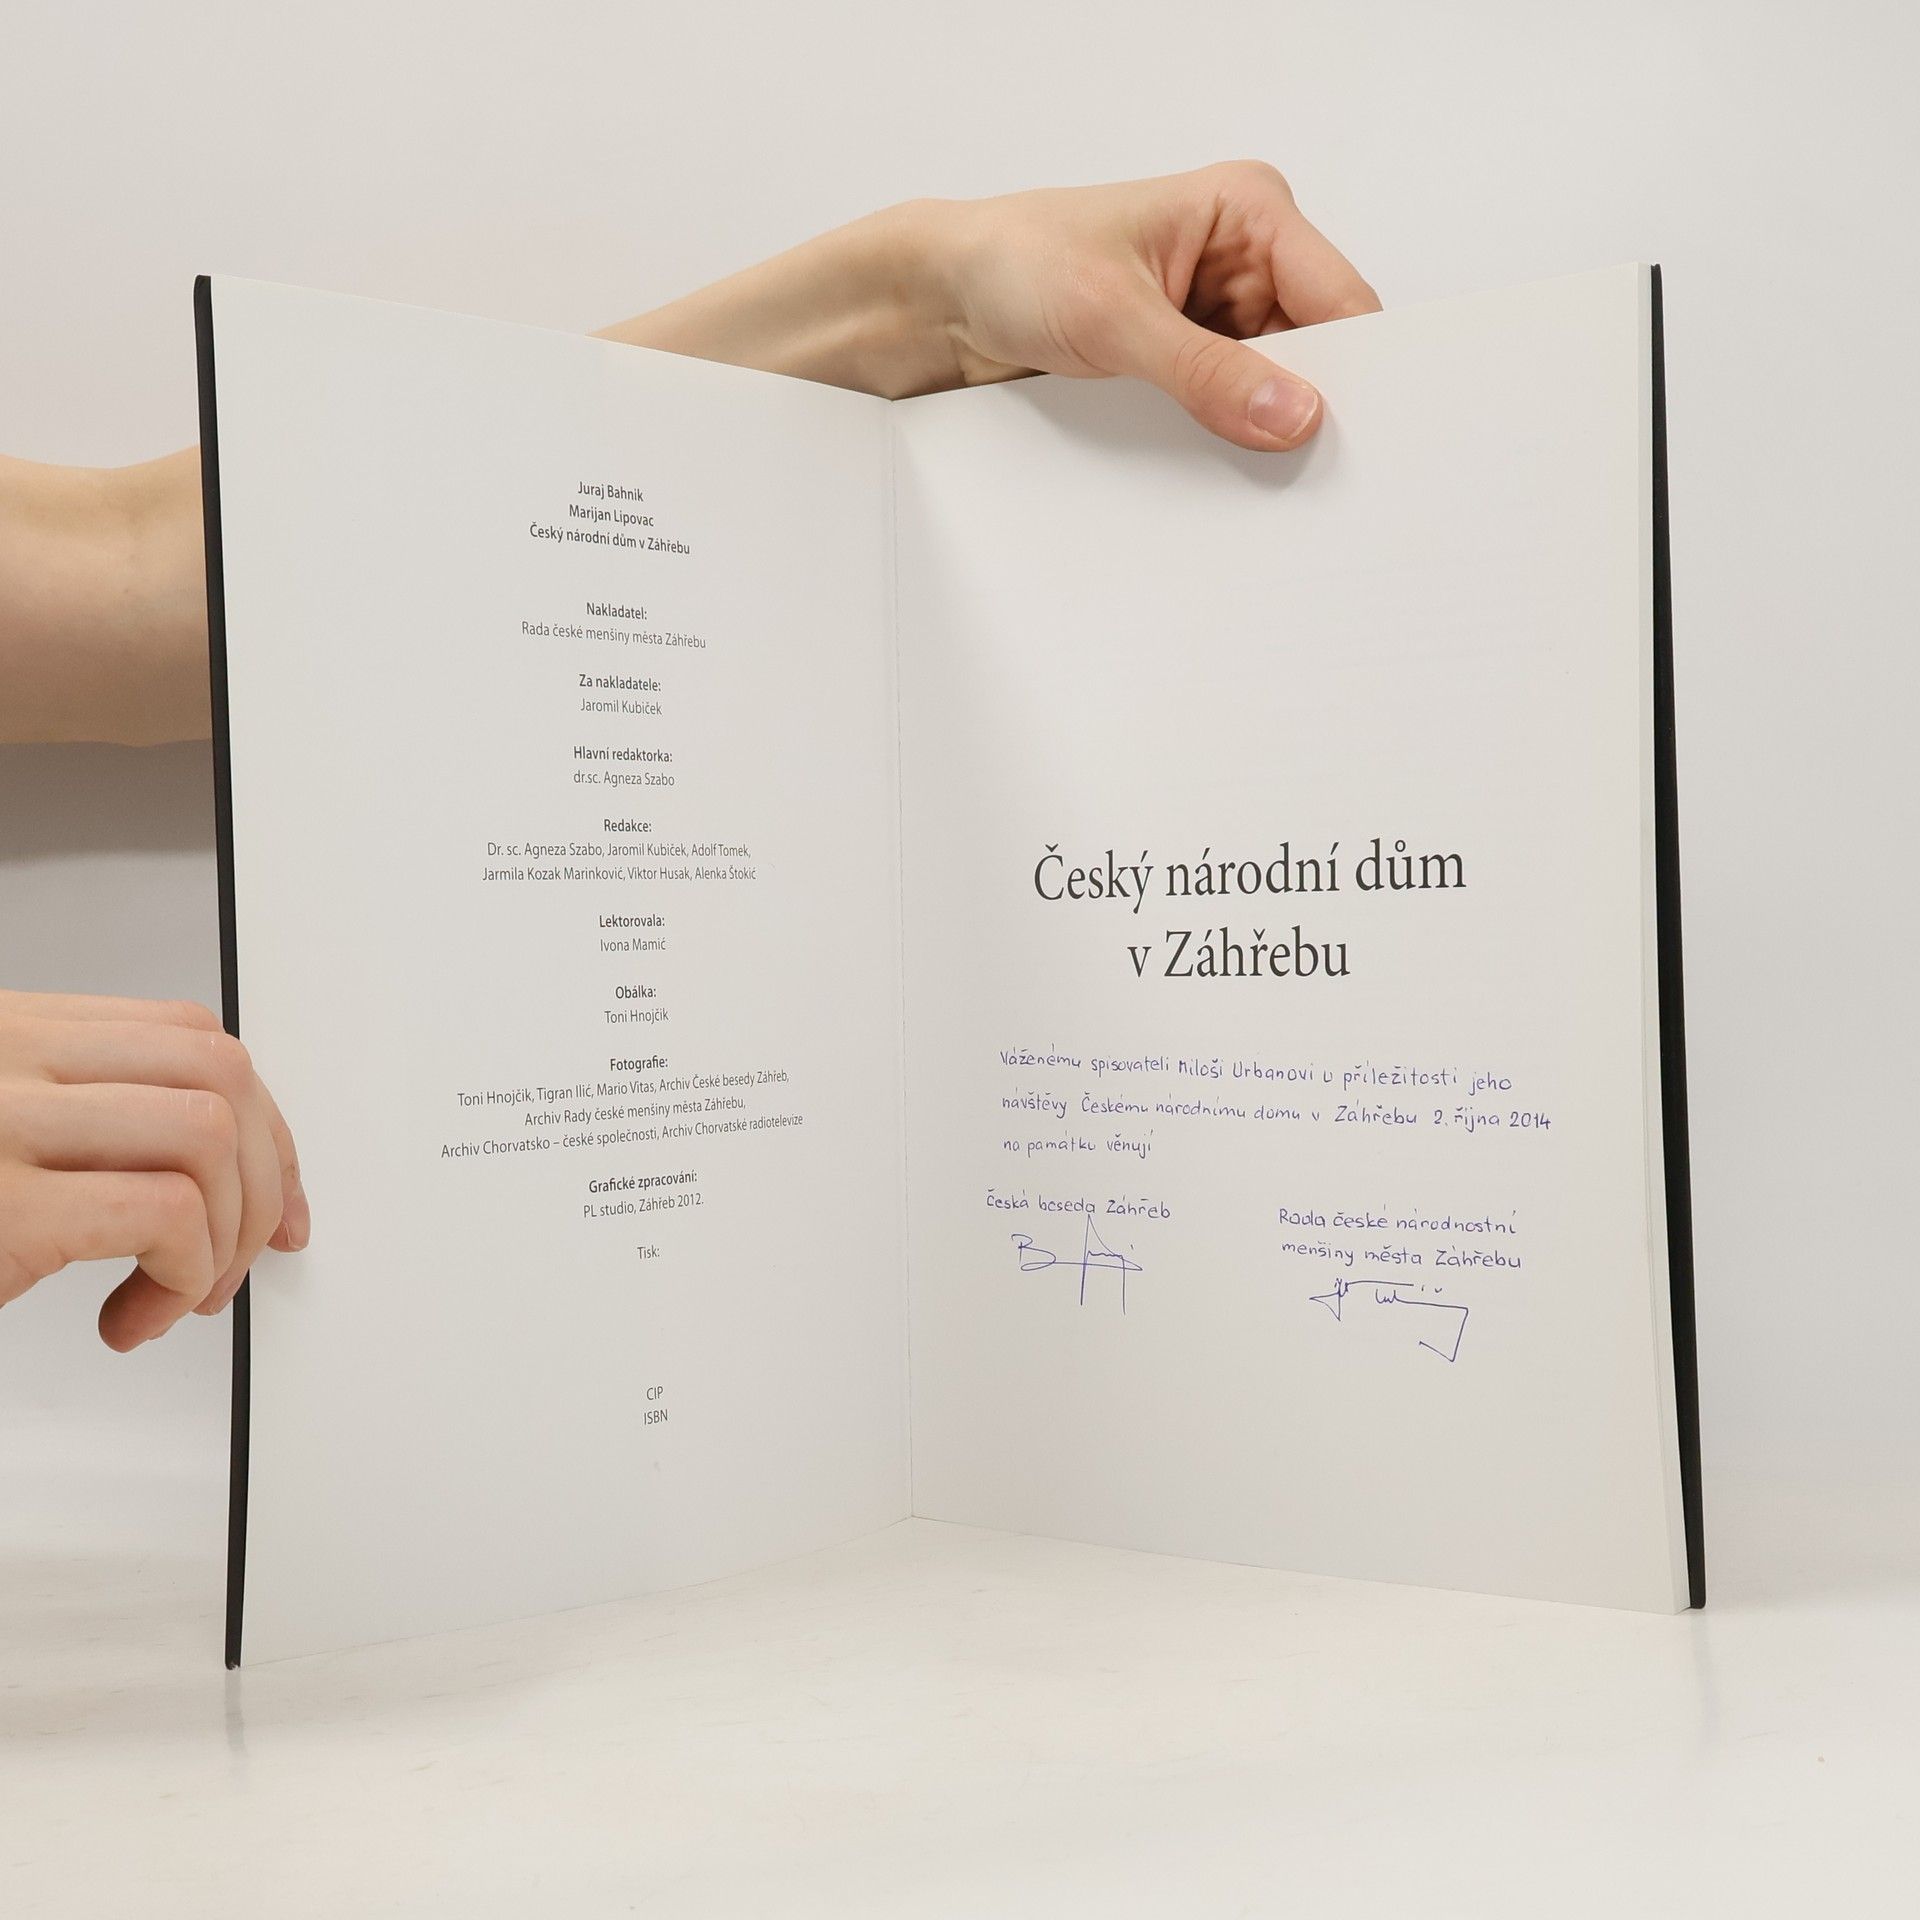 Juraj Bahnik
Marijan Lipovac
Český národní dům v Záhřebu
Nakladatel:
Rada české menšiny města Záhřebu
Za nakladatele:
Jaromil Kubiček
Hlavní redaktorka:
dr.sc. Agneza Szabo
Redakce:
Dr. sc. Agneza Szabo, Jaromil Kubiček, Adolf Tomek,
Jarmila Kozak Marinković, Viktor Husak, Alenka Štokić
Lektorovala:
Ivona Mamić
Obálka:
Toni Hnojčik
Fotografie:
Toni Hnojčik, Tigran Ilić, Mario Vitas, Archiv České besedy Záhřeb,
Archiv Rady české menšiny města Záhřebu,
Archiv Chorvatsko – české společnosti, Archiv Chorvatské radiotelevize
Grafické zpracování:
PL studio, Záhřeb 2012.
Tisk:
CIP
ISBN
Český národní dům
v Záhřebu
Váženému spisovateli Miloši Urbanovi u příležitosti jeho
návštěvy Českému národnímu domu v Záhřebu 2. října 2014
na památku věnují
Česká beseda Záhřeb
Rada české národnostní
menšiny města Záhřebu